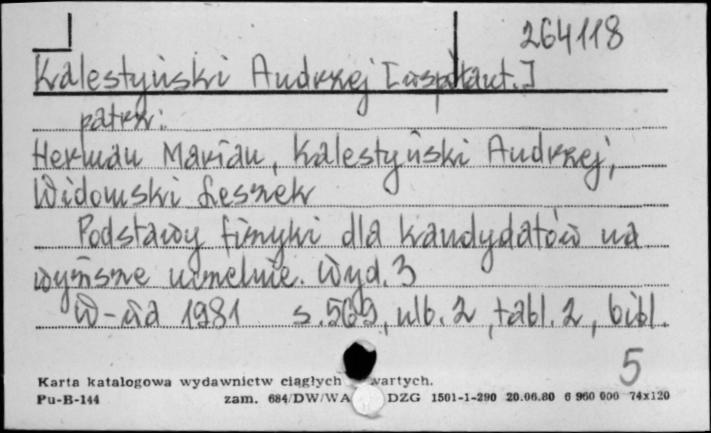 264118
Kalestyński Andrzej [współaut.]
patrz:
Herman Marian, Kalestyński Andrzej,
Widomski Leszek
Podstawy fizyki dla kandydatów na
wyższe uczelnie. Wyd. 3
W-wa 1981 s. 569, nlb. 2, tabl. 2, bibl.
5
Karta katalogowa wydawnictw ciągłych wartych.
Pu-B-144 zam. 684/DW/WA DZG 1501-1-290 20.06.80 6 960 000 74x120